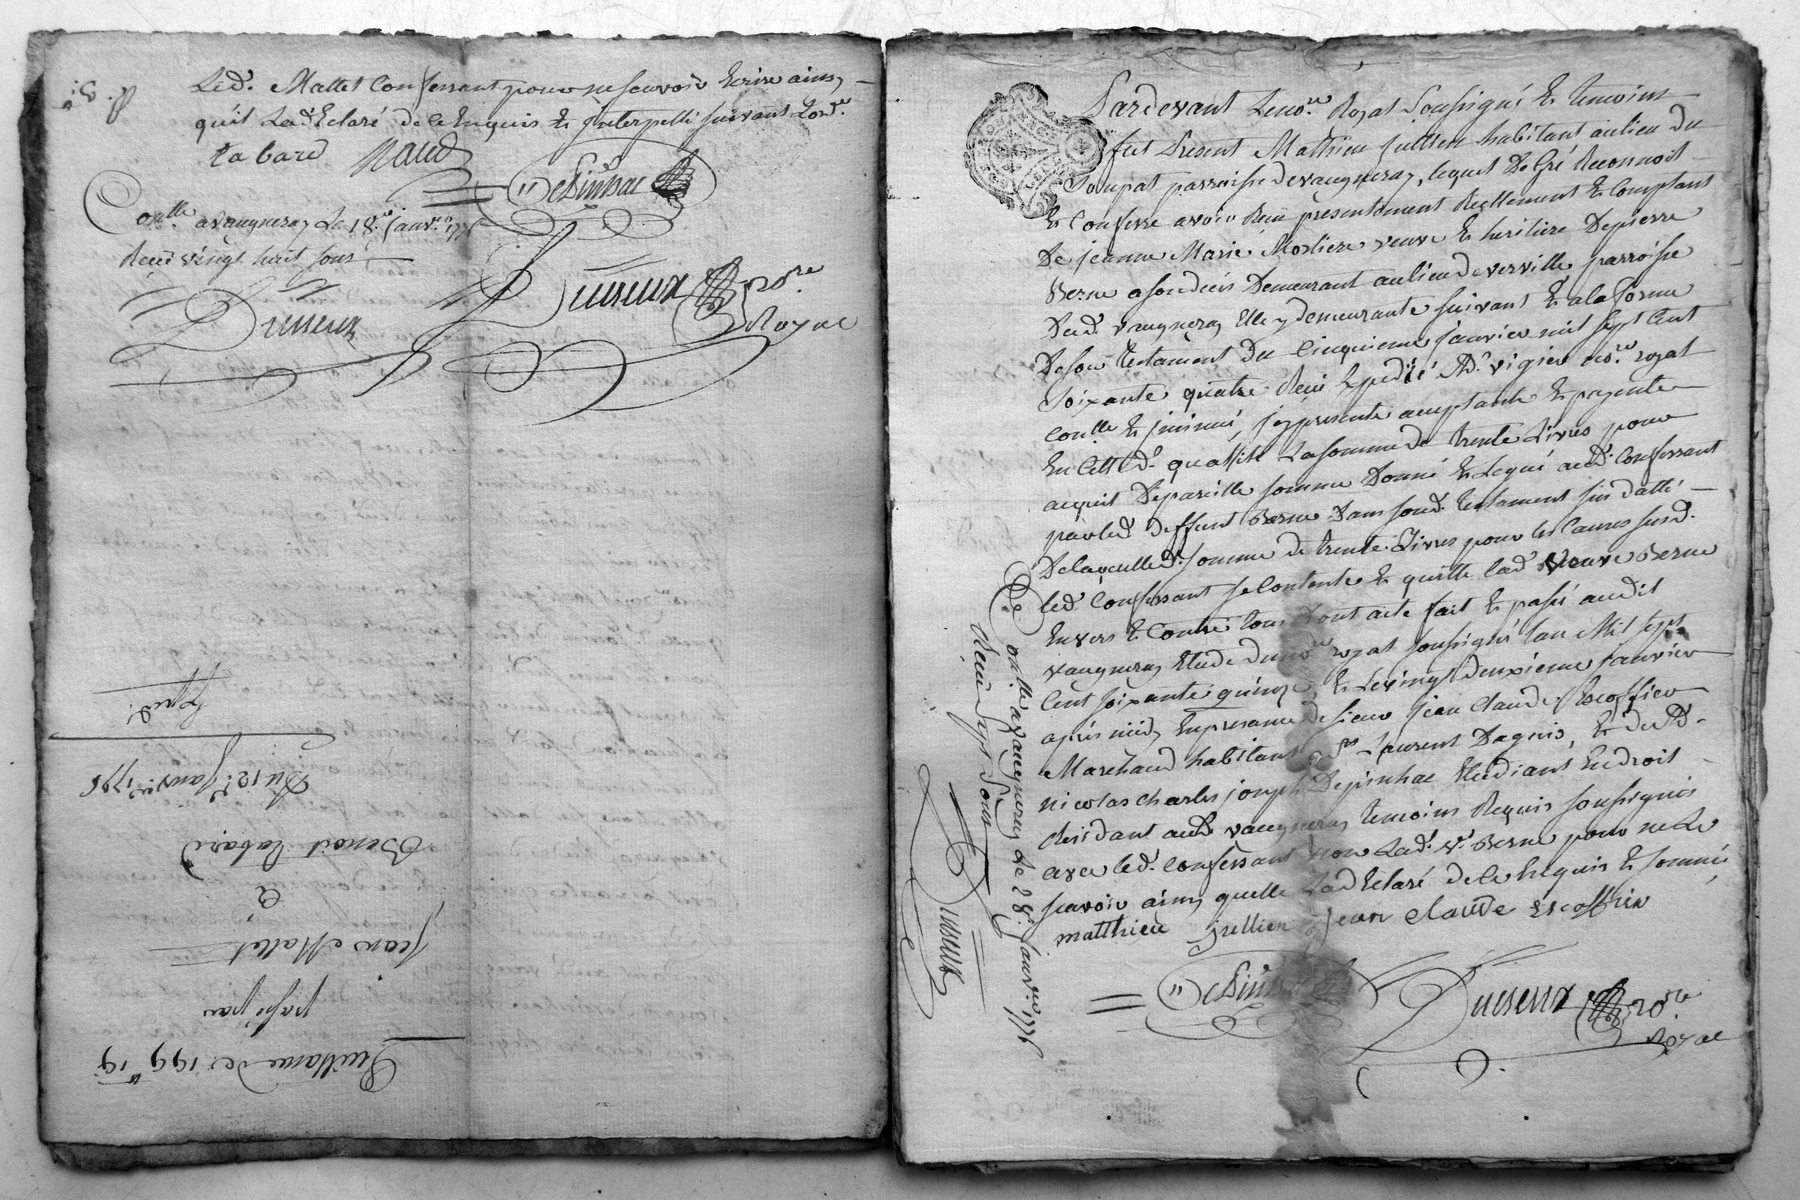 Led. Mattet Confessant pour ne scavoir Ecrire ainsy
qu'il La dEclaré de ce Enquis Et Interpellé suivant Lord.ce
tabard Naud
DesPinhac
Con.lle a vaugneray le 18.e Janv.er 1776
Receu vingt huit sous
Duseux
Duseux no.re
Royal
Exped.
Du 12.e Janvier 1776
Benoit tabard
a
Jean Mattet
passé par
Quittance de 199 lt 19
Pardevant Le no.re Royal Soussigné Et temoins
fut Present Mathieu Jullien habitant au lieu du
Soupat parroisse de vaugneray, lequel De Gré Reconnoit
Et Confesse avoir Receu presentement Reellement Et Comptant
De jeanne Marie Morliere veuve Et heritiere De pierre
Berne a son deces Demeurant au lieu de verville parroisse
Dud. vaugneray Elle y demeurante suivant Et a la forme
De son testament du Cinquieme janvier mil sept Cent
soixante quatre Receu Expedié Me. vigier no.re royal
Con.lle Et jnsinué, jcy presente acceptante Et payante
En Cette d. qualité La somme de trente Livres pour
acquit De pareille somme Donné Et Legué aud. Confessant
par led. deffunt Berne Dans son d. testament sus datté
De laquelle d. somme de trente Livres pour les Causes susd.
led. Confessant se Contente Et quitte lad. veuve Berne
Envers Et Contre tous Dont acte fait Et passé audit
vaugneray Etude du no.re royal soussigné l'an Mil sept
Cent soixante quinze, Et Le vingt deuxieme janvier
apres midy En presence de sieur jean Claude Escoffier
Marchand habitant a St Laurent Dagnis, Et de Me.
nicolas charles joseph Depinhac Etudiant En droit
Residant aud. vaugneray temoins Requis soussignés
avec led. Confessant non Lad. ve. Berne pour ne Le
scavoir ainsy quelle La dEclaré de ce Enquis Et sommée
matthieu jullien jean claude Escoffier
DesPinhac
Duseux no.re
Royal
Con.lle a vaugneray le 28.e Janv.er 1776
Receu sept sous
Duseux